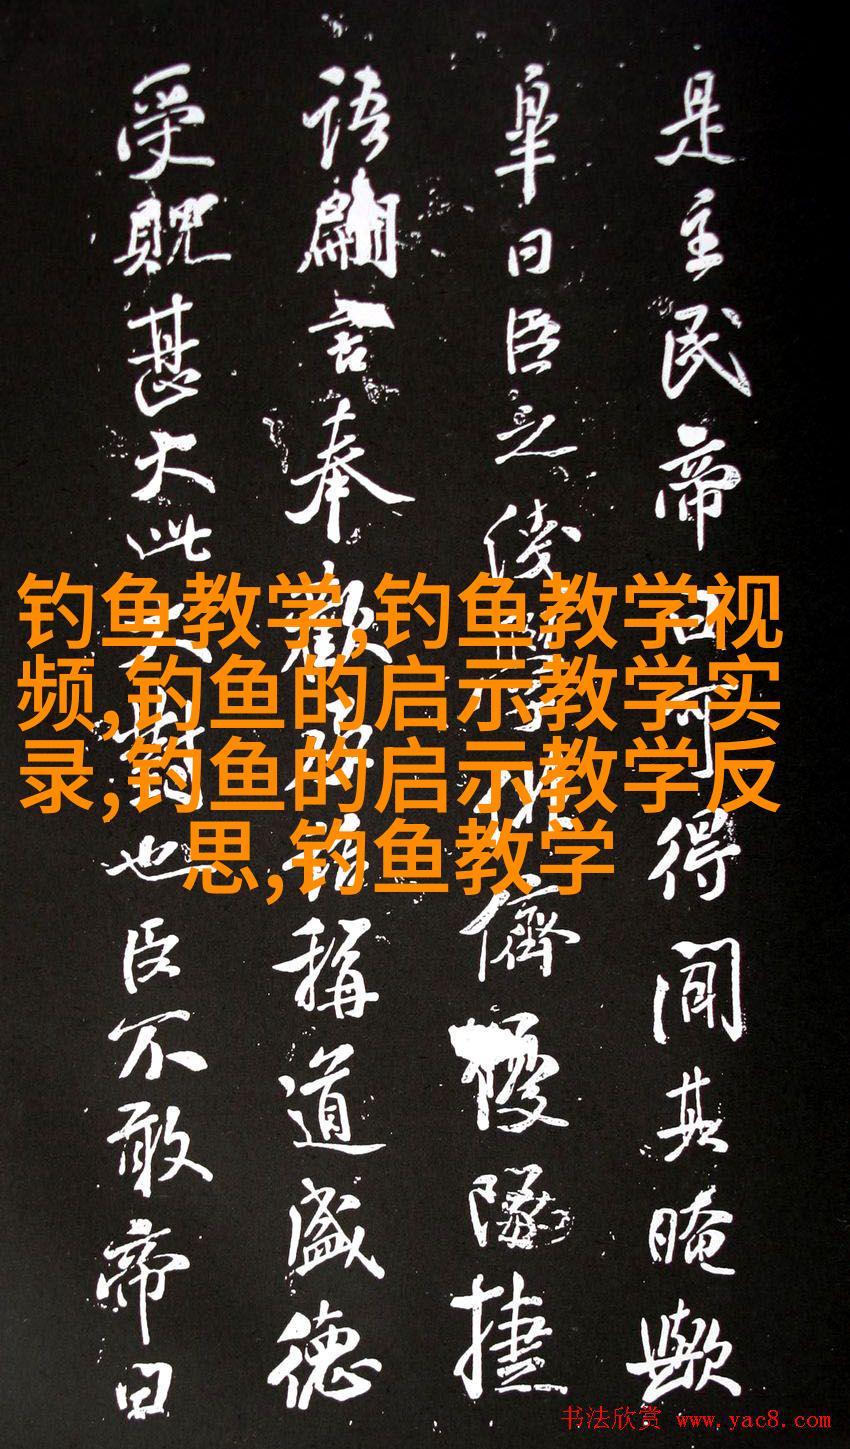 是主民帝曰可得聞其晻歟
皐曰臣之儕隊捷
語言奉歡稱道盛德
受貺甚大此大對也臣不敢帝曰
钓鱼教学,钓鱼教学视
频,钓鱼的启示教学实
录,钓鱼的启示教学反
思,钓鱼教学
书法欣赏 www.yac8.com